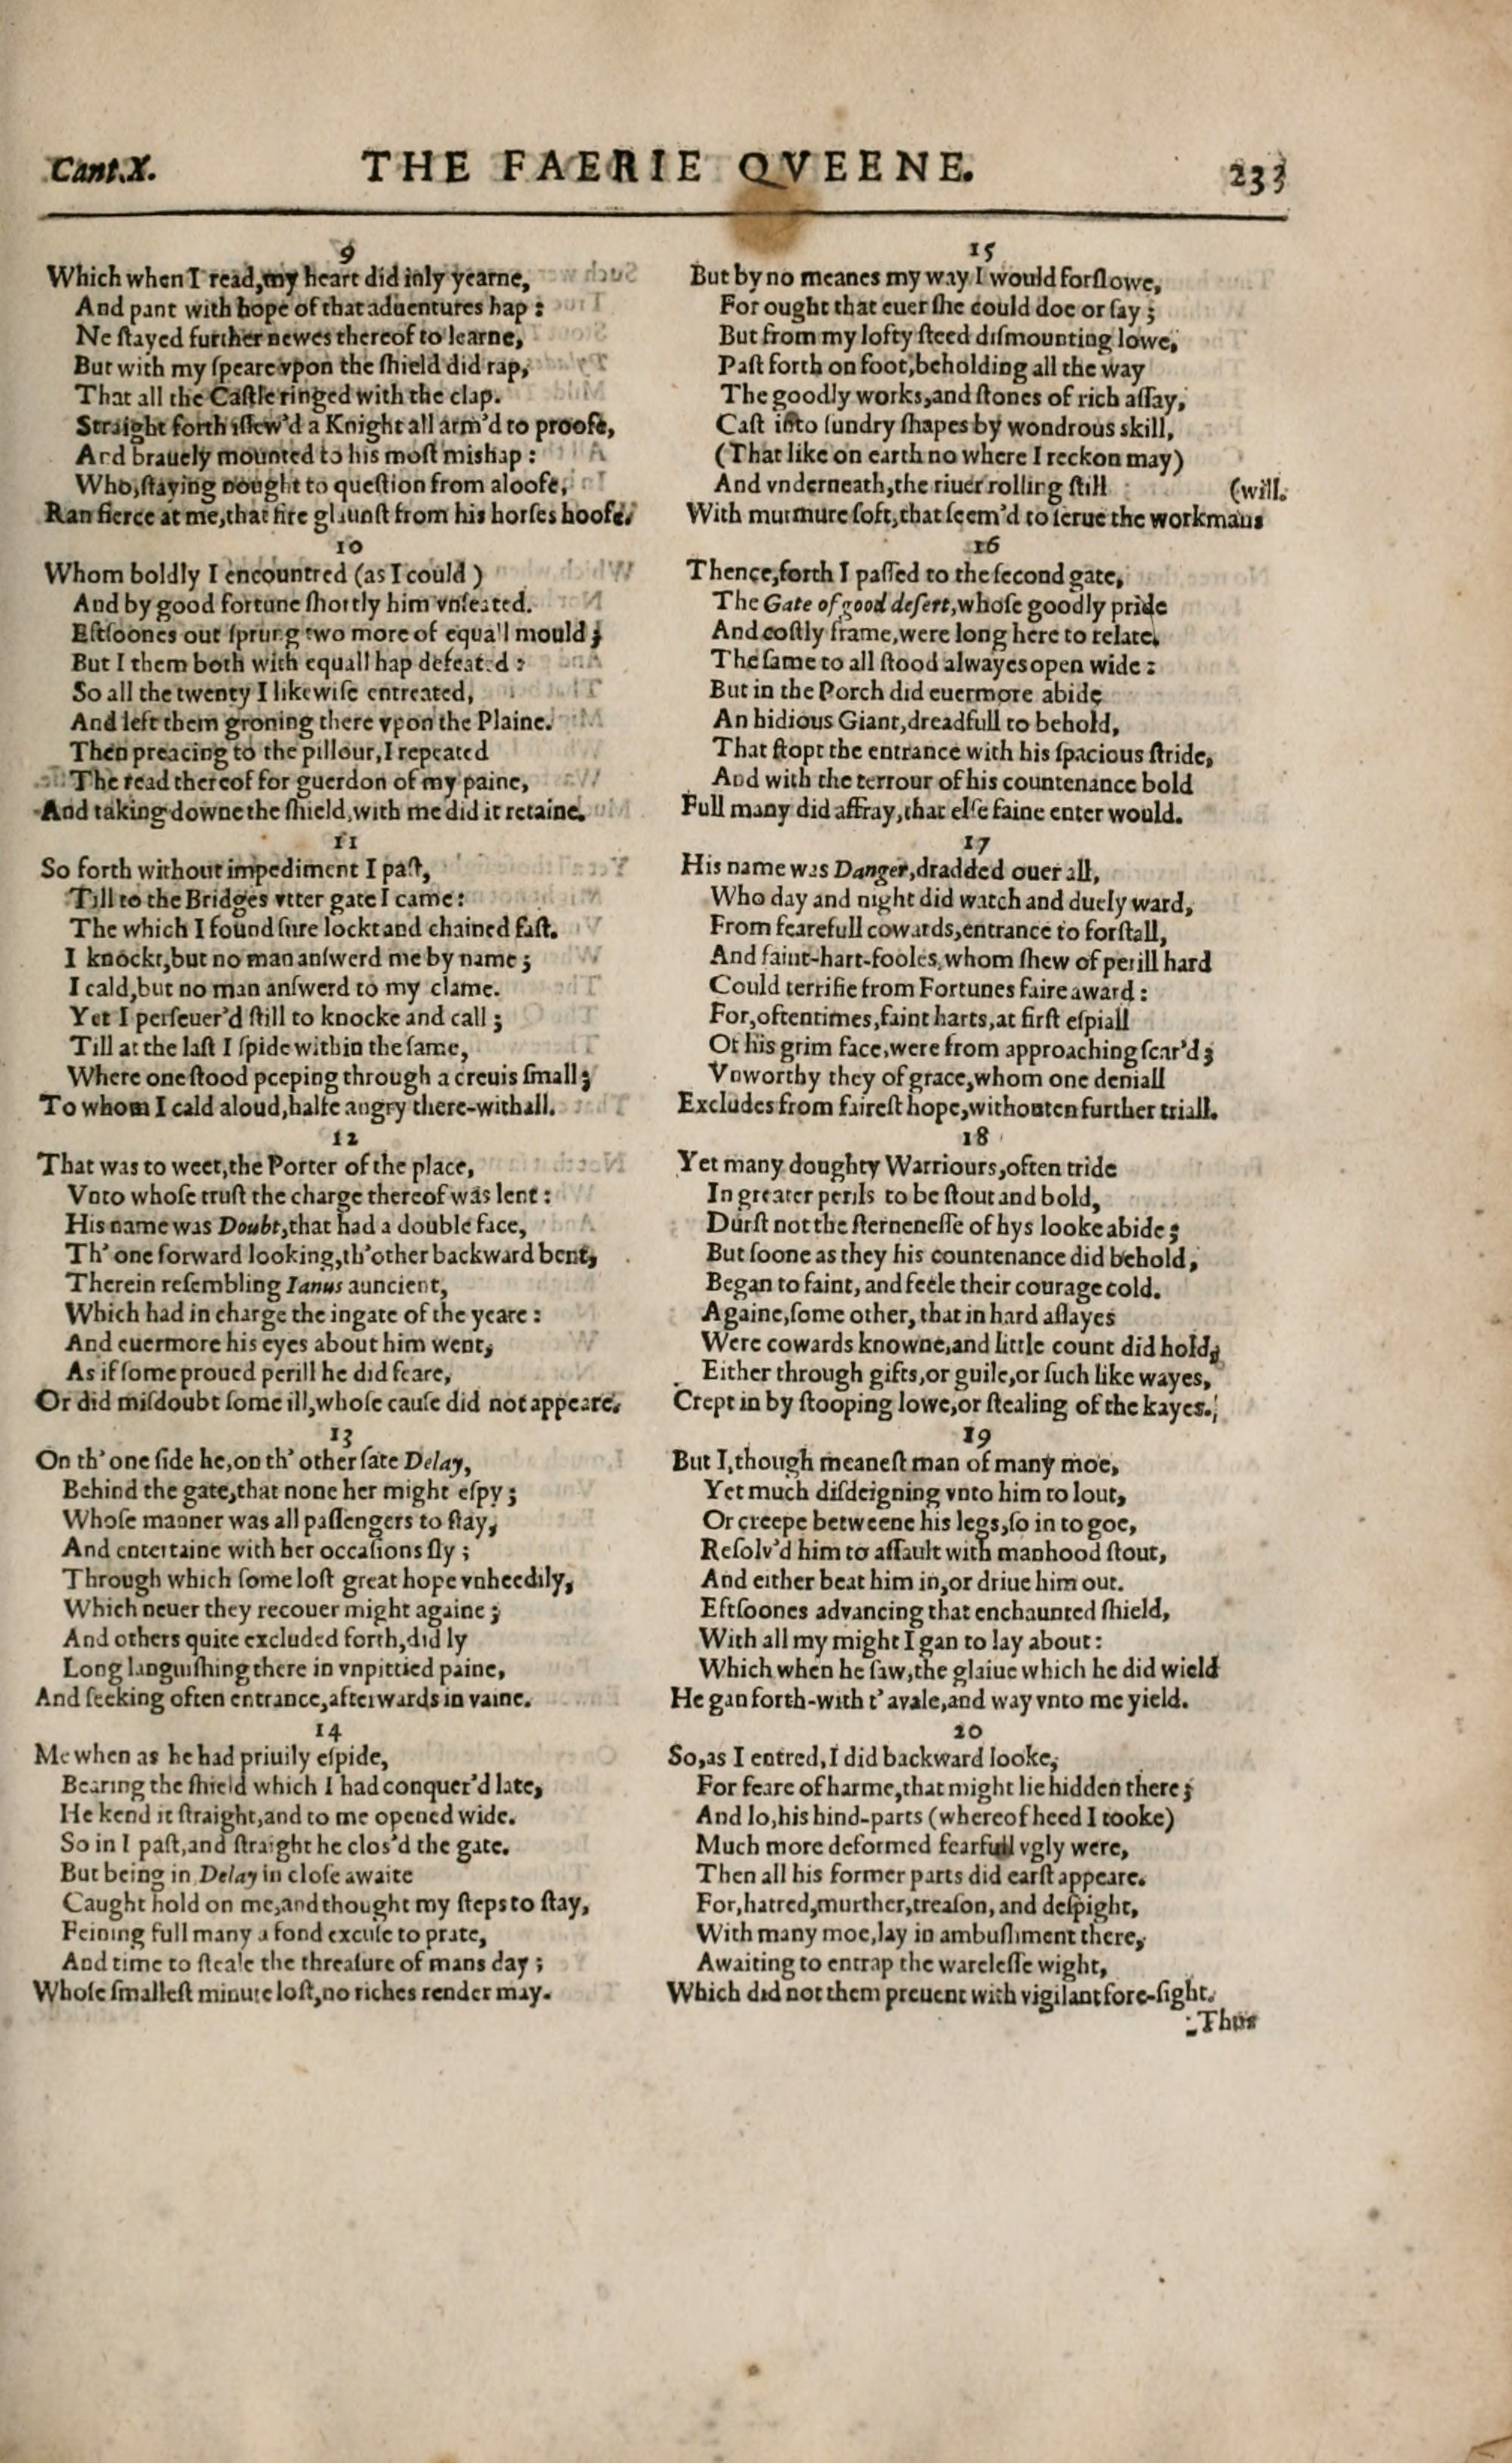 Cant.X.
THE FAERIE QVEENE.
233
9
Which when I read,my heart did inly yearne,
And pant with hope of that aduentures hap :
Ne ſtayed further newes thereof to learne,
But with my ſpeare vpon the ſhield did rap,
That all the Caſtle ringed with the clap.
Straight forth iſſew'd a Knight all arm'd to proofe,
And brauely mounted to his moſt mishap :
Who,ſtaying nought to queſtion from aloofe,
Ran fierce at me,that fire glaunſt from his horſes hoofe.
10
Whom boldly I encountred (as I could )
And by good fortune ſhortly him vnſeated.
Eftſoones out ſprung two more of equall mould ;
But I them both with equall hap defeated :
So all the twenty I likewiſe entreated,
And left them groning there vpon the Plaine.
Then preacing to the pillour,I repeated
The read thereof for guerdon of my paine,
And taking downe the ſhield,with me did it retaine.
11
So forth without impediment I paſt,
Till to the Bridges vtter gate I came :
The which I found ſure lockt and chained faſt.
I knockt,but no man anſwerd me by name ;
I cald,but no man anſwerd to my clame.
Yet I perſeuer'd ſtill to knocke and call ;
Till at the laſt I ſpide within the ſame,
Where one ſtood peeping through a creuis ſmall ;
To whom I cald aloud,halfe angry there-withall.
12
That was to weet,the Porter of the place,
Vnto whoſe truſt the charge thereof was lent :
His name was Doubt,that had a double face,
Th' one forward looking,th'other backward bent,
Therein reſembling Ianus auncient,
Which had in charge the ingate of the yeare :
And euermore his eyes about him went,
As if ſome proued perill he did feare,
Or did miſdoubt ſome ill,whoſe cauſe did not appeare.
13
On th' one ſide he,on th' other ſate Delay,
Behind the gate,that none her might eſpy ;
Whoſe manner was all paſſengers to ſtay,
And entertaine with her occaſions ſly ;
Through which ſome loſt great hope vnheedily,
Which neuer they recouer might againe ;
And others quite excluded forth,did ly
Long languiſhing there in vnpittied paine,
And ſeeking often entrance,afterwards in vaine.
14
Me when as he had priuily eſpide,
Bearing the ſhield which I had conquer'd late,
He kend it ſtraight,and to me opened wide.
So in I paſt,and ſtraight he clos'd the gate.
But being in Delay in cloſe awaite
Caught hold on me,and thought my ſteps to ſtay,
Feining full many a fond excuſe to prate,
And time to ſteale the threaſure of mans day ;
Whoſe ſmalleſt minute loſt,no riches render may.
15
But by no meanes my way I would forſlowe,
For ought that euer ſhe could doe or ſay ;
But from my lofty ſteed diſmounting lowe,
Paſt forth on foot,beholding all the way
The goodly works,and ſtones of rich aſſay,
Caſt into ſundry ſhapes by wondrous skill,
(That like on earth no where I reckon may)
And vnderneath,the riuer rolling ſtill
(will.
With murmure ſoft,that ſeem'd to ſerue the workmans
16
Thence,forth I paſſed to the ſecond gate,
The Gate of good deſert,whoſe goodly pride
And coſtly frame,were long here to relate.
The ſame to all ſtood alwayes open wide :
But in the Porch did euermore abide
An hidious Giant,dreadfull to behold,
That ſtopt the entrance with his ſpacious ſtride,
And with the terrour of his countenance bold
Full many did affray,that elſe faine enter would.
17
His name was Danger,dradded ouer all,
Who day and night did watch and duely ward,
From fearefull cowards,entrance to forſtall,
And faint-hart-fooles,whom ſhew of perill hard
Could terrifie from Fortunes faire award :
For,oftentimes,faint harts,at firſt eſpiall
Of his grim face,were from approaching ſcar'd ;
Vnworthy they of grace,whom one deniall
Excludes from faireſt hope,withouten further triall.
18
Yet many doughty Warriours,often tride
In greater perils to be ſtout and bold,
Durſt not the ſterneneſſe of hys looke abide ;
But ſoone as they his countenance did behold,
Began to faint, and feele their courage cold.
Againe,ſome other, that in hard aſſayes
Were cowards knowne,and little count did hold,
Either through gifts,or guile,or ſuch like wayes,
Crept in by ſtooping lowe,or ſtealing of the kayes.
19
But I,though meaneſt man of many moe,
Yet much diſdeigning vnto him to lout,
Or creepe betweene his legs,ſo in to goe,
Reſolv'd him to aſſault with manhood ſtout,
And either beat him in,or driue him out.
Eftſoones advancing that enchaunted ſhield,
With all my might I gan to lay about :
Which when he ſaw,the glaiue which he did wield
He gan forth-with t' avale,and way vnto me yield.
20
So,as I entred,I did backward looke,
For feare of harme,that might lie hidden there ;
And lo,his hind-parts (whereof heed I tooke)
Much more deformed fearfull vgly were,
Then all his former parts did earſt appeare.
For,hatred,murther,treaſon, and deſpight,
With many moe,lay in ambuſhment there,
Awaiting to entrap the wareleſſe wight,
Which did not them preuent with vigilant fore-ſight.
Thus